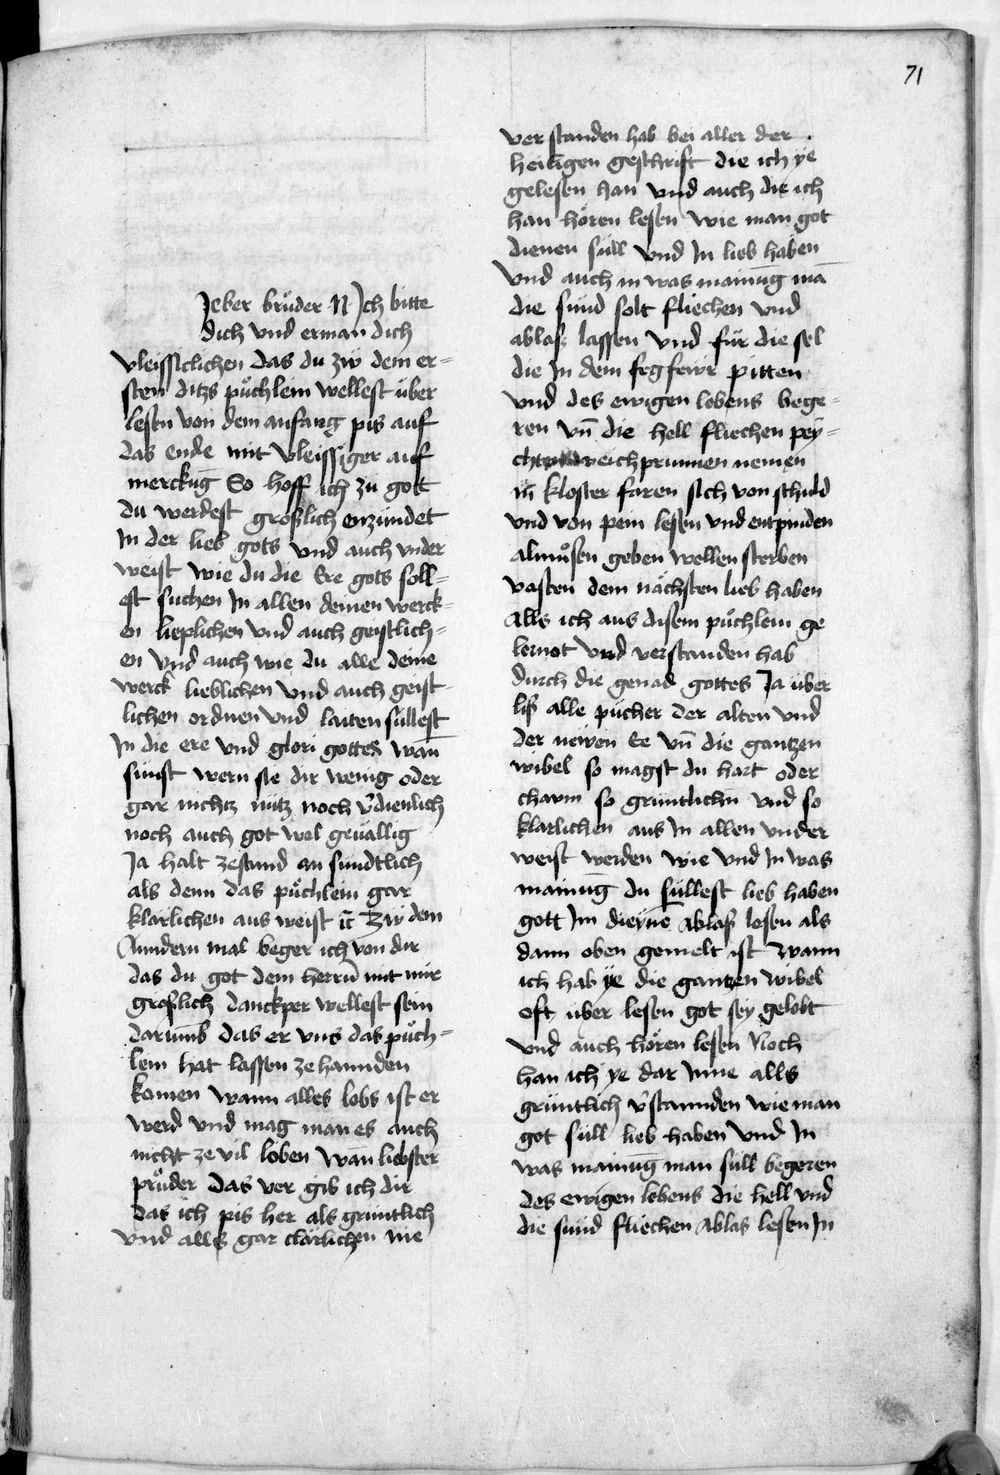 71
Jeber brůder N Jch bitte
dich vnd erman dich
vleissiclichen das du zw dem er=
sten ditzs půchlem wellest über
lesen von dem anfang pis auf
das ende mit vleissiger auf
merckūg So hoff ich zu gott
du werdest größlich enzündet
Jn der lieb gots vnd auch vnder
weist wie du die Ere gots soll=
est suchen Jn allen deinen werck=
en lieplichen vnd auch geistlich=
en vnd auch wie du alle deine
werck lieblichen vnd auch geist=
lichen ordnen vnd laiten süllest
Jn die ere vnd glori gottes wan̄
sünst wern sie dir wenig oder
gar nichtz nütz noch v̄dienlich
noch auch got wol geuallig
Ja halt zestand an sündtlich
als denn das půchlein gar
klarlichen aus weist zc̄ Zw dem
Anndern mal beger ich von dir
das du got dem herrn̄ mit mir
größlich danckper wellest sein
darūmb das er vns das půch=
lem hat lassen ze hannden
komen wann alles lobs ist er
werd vnd mag man es auch
nicht ze vil loben wan liebster
průder das ver gib ich dir
das ich pis her als grüntlich
vnd alls gar clärlichen nie
ver standen hab bei aller der
heiligen geschrift die ich ye
gelesen han vnd auch die ich
han hören lesen wie man got
dienen süll vnd Jn lieb haben
vnd auch in was mainūg mā
die sünd solt fliechen vnd
ablaß lassen vnd für die sel
die Jn dem fegfewr pitten
vnd des ewigen lebens bege=
ren vn̄ die hell fliechen pey=
chten weichprunnen nemen
in̄ kloster faren sich von schuld
vnd von pein lesen vnd entpinden
almůsen geben wellen sterben
vasten dem nächsten lieb haben
Alls ich aus disem půchlein ge
lernot vnd verstanden hab
durch die genad gottes Ja über
liß alle pücher der alten vnd
der newen Ee vn̄ die gantzen
wibel so magst du hart oder
chawm so grüntlichn̄ vnd so
klarlichen aus Jn allen vnder
weist werden wie vnd Jn was
mainūg du süllest lieb haben
gott Jm dieyne Ablaß lesen als
dann oben gemelt ist wann
ich hab ye die gantzen wibel
oft über lesen got sey gelobt
vnd auch hören lesen Noch
han ich ye dar Jnne alls
grüntlich v̄stannden wie man
got süll lieb haben vnd Jn
was mainūg man süll begeren
des ewigen lebens die hell vnd
die sünd fliechen Ablas lesen Jn